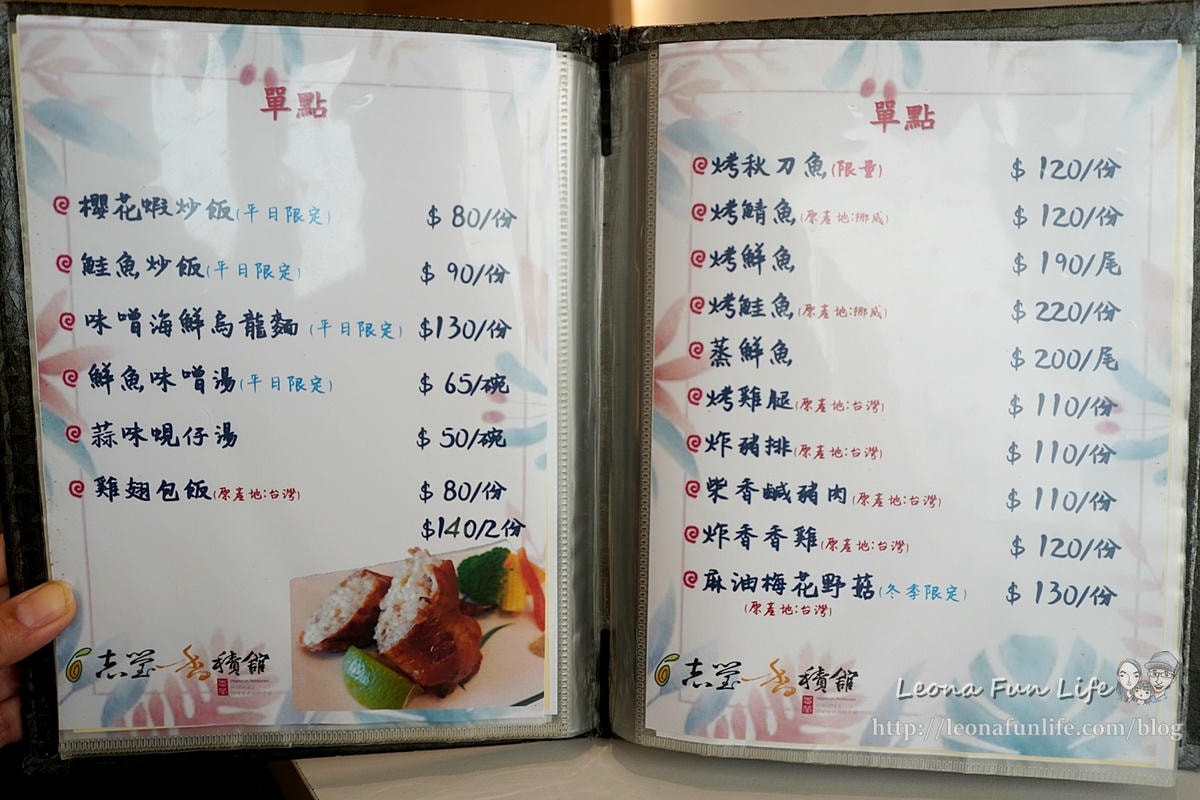 單點
櫻花蝦炒飯(平日限定) $ 80/份
鮭魚炒飯(平日限定) $ 90/份
味噌海鮮烏龍麵(平日限定) $130/份
鮮魚味噌湯(平日限定) $ 65/碗
蒜味蜆仔湯 $ 50/碗
雞翅包飯(原產地:台灣) $ 80/份
$140/2份
志瑩一香積館
單點
烤秋刀魚(限量) $ 120/份
烤鯖魚(原產地:挪威) $ 120/份
烤鮮魚 $ 190/尾
烤鮭魚(原產地:挪威) $ 220/份
蒸鮮魚 $ 200/尾
烤雞腿(原產地:台灣) $ 110/份
炸豬排(原產地:台灣) $ 110/份
柴香鹹豬肉(原產地:台灣) $ 110/份
炸香香雞(原產地:台灣) $ 120/份
麻油梅花野菇(冬季限定) $ 130/份
(原產地:台灣)
志瑩一香積館
Leona Fun Life
http://leonafunlife.com/blog